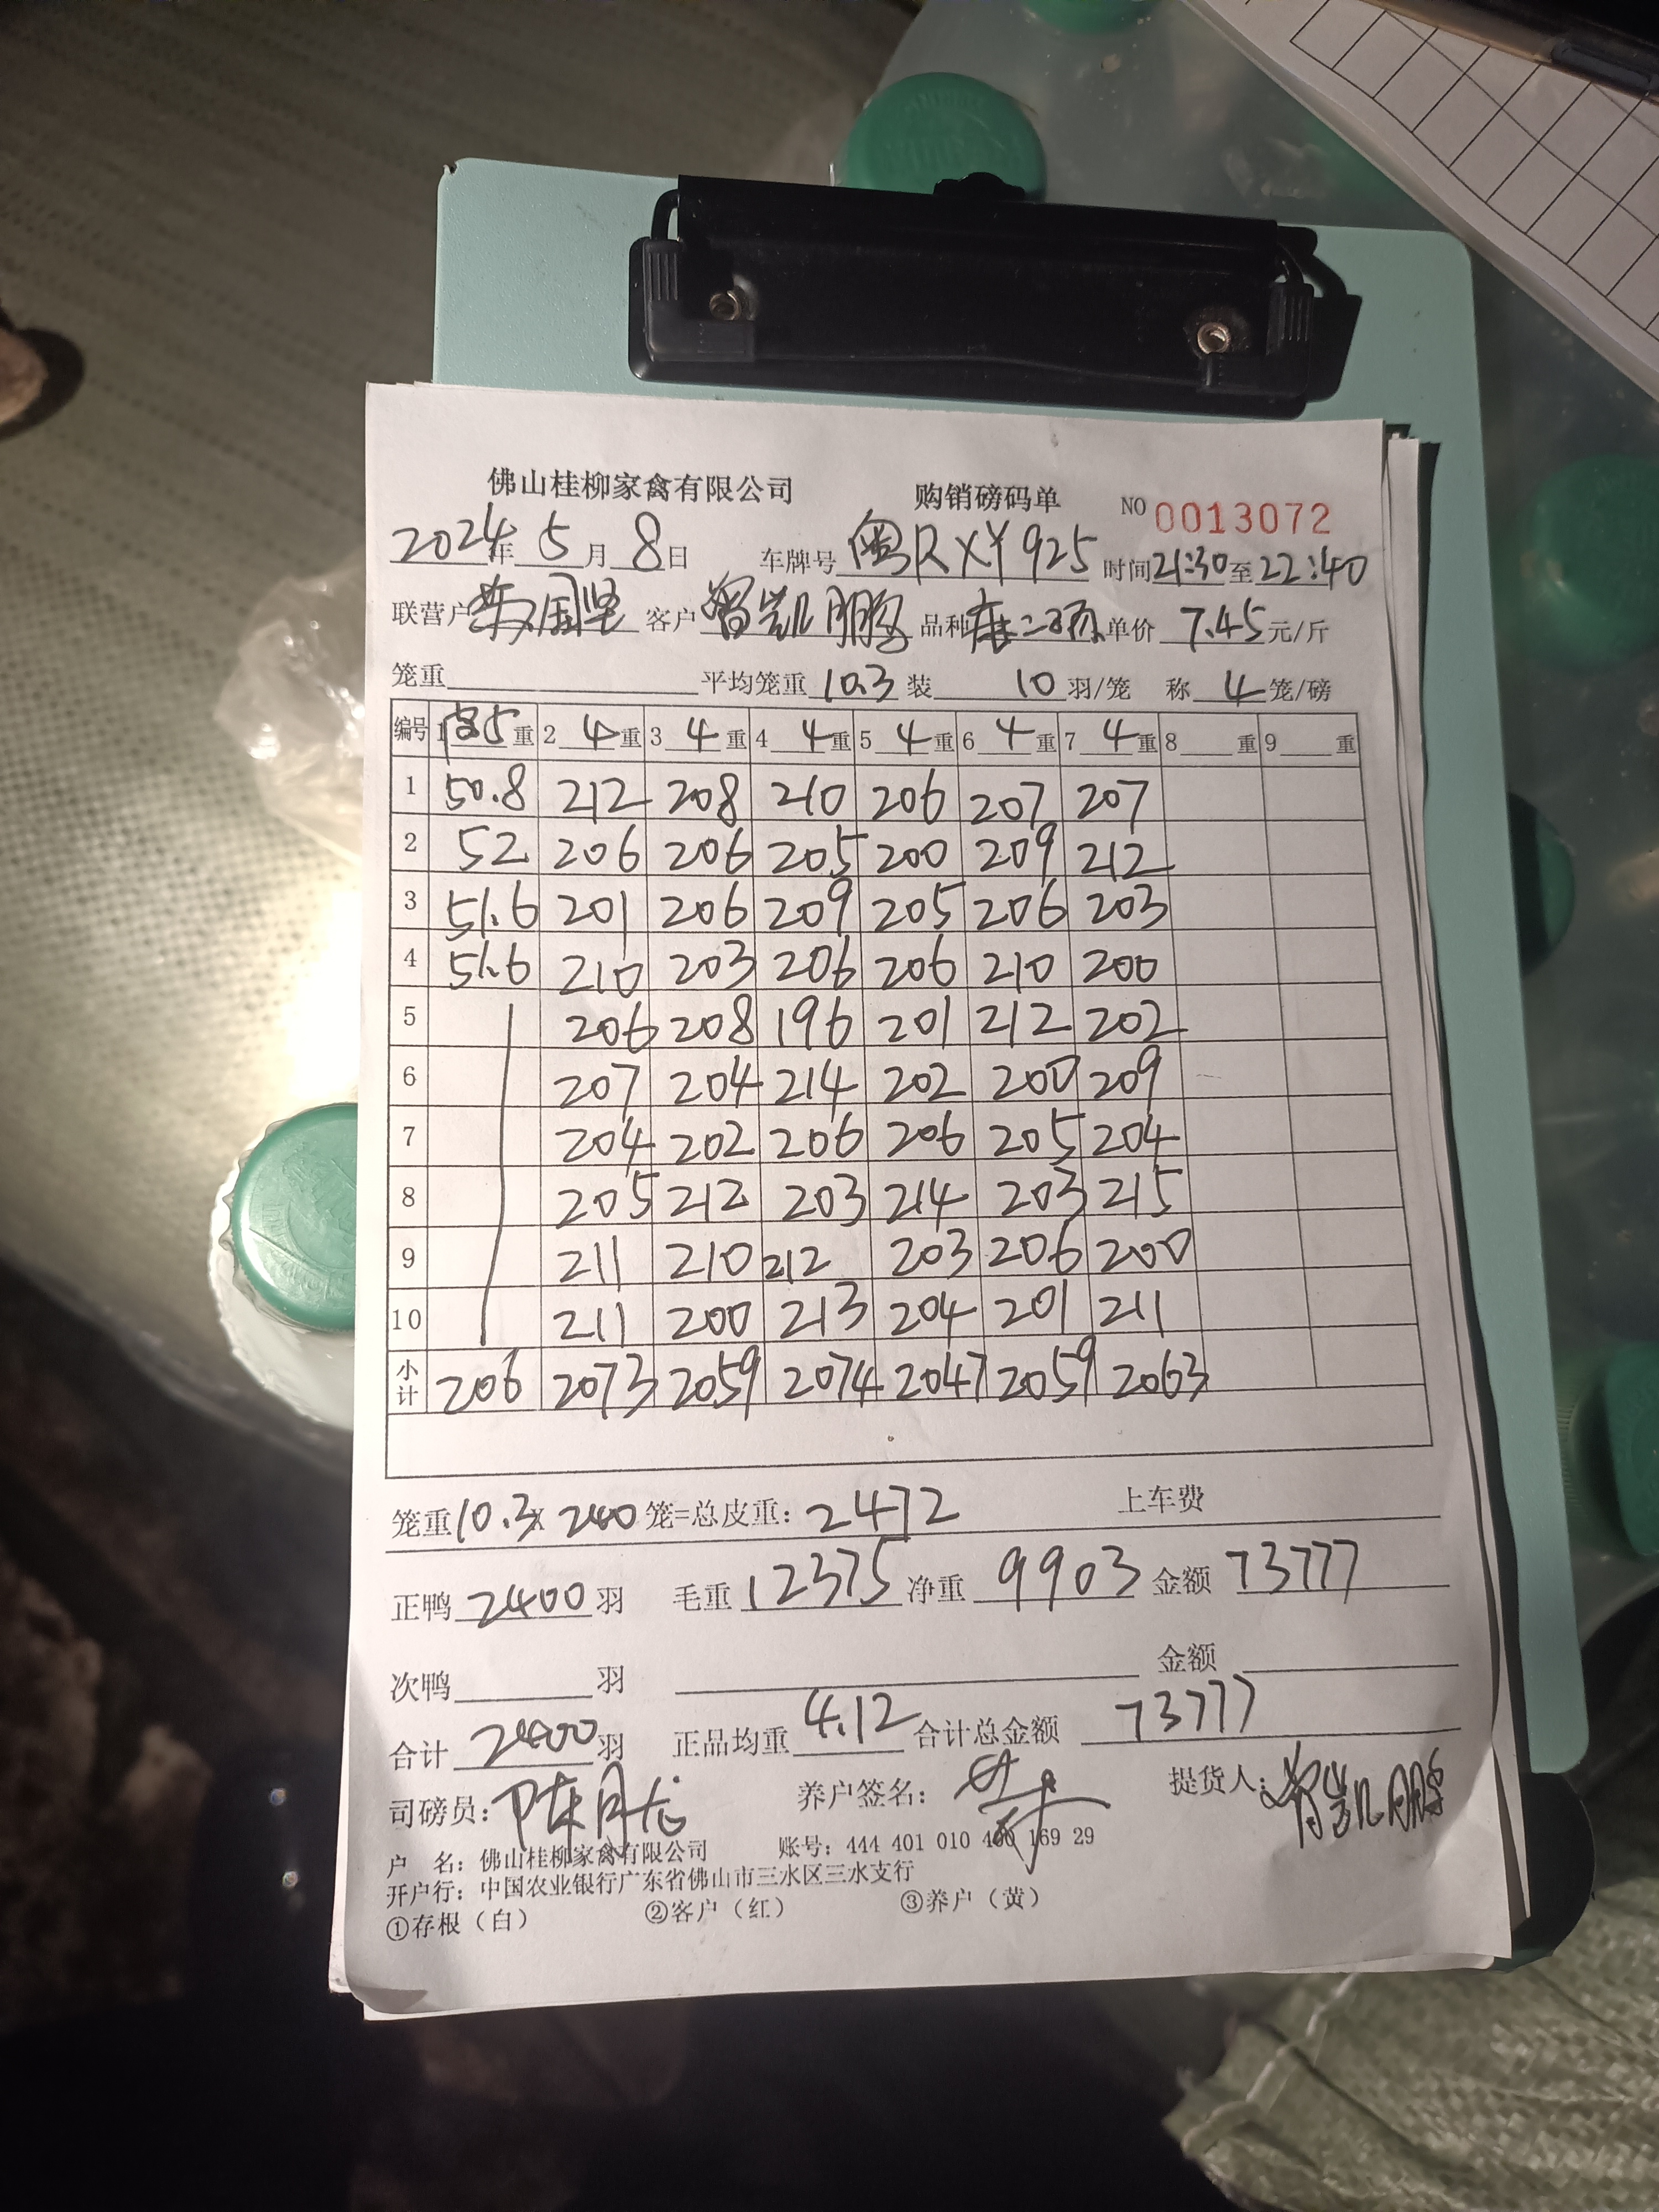 佛山桂柳家禽有限公司 购销磅码单 NO 0013072
2024年 5月 8日 车牌号 粤RXY925 时间21:30至22:40
联营户 国坚 客户 曾凯鹏 品种 单价 7.45元/斤
笼重 平均笼重 10.3 装 10 羽/笼 称 4 笼/磅
编号 1 5重 2 4重 3 4重 4 4重 5 4重 6 4重 7 4重 8 重 9 重
1 50.8 212 208 210 206 207 207
2 52 206 206 205 200 209 212
3 51.6 201 206 209 205 206 203
4 51.6 210 203 206 206 210 200
5 206 208 196 201 212 202
6 207 204 214 202 200 209
7 204 202 206 206 205 204
8 205 212 203 214 203 215
9 211 210 212 203 206 200
10 211 200 213 204 201 211
小计 206 2073 2059 2074 2047 2059 2063
笼重10.3X 240 笼=总皮重: 2472 上车费
正鸭 2400 羽 毛重 12375 净重 9903 金额 73777
次鸭 羽 金额
合计 2400 羽 正品均重 4.12 合计总金额 73777
司磅员: 养户签名: 提货人: 曾凯鹏
户 名: 佛山桂柳家禽有限公司 账号: 444 401 010 400 169 29
开户行: 中国农业银行广东省佛山市三水区三水支行
①存根（白） ②客户（红） ③养户（黄）